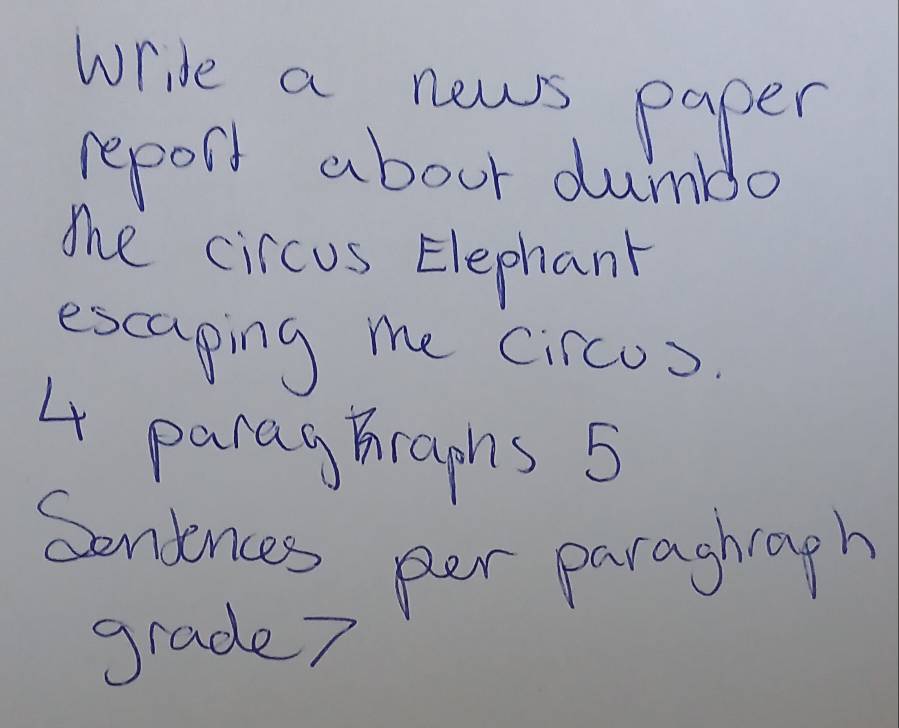 Write a news paper
report about dumbo
the circus Elephant
escaping the circus.
4 paraghraphs 5
Sentences per paraghraph
grade 7